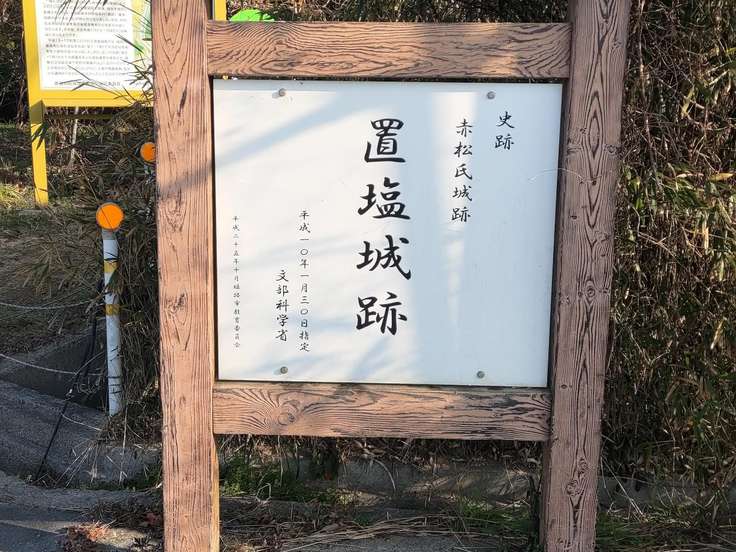 史跡
赤松氏城跡
置塩城跡
平成一〇年一月三〇日指定
文部科学省
平成二十五年十月姫路市教育委員会